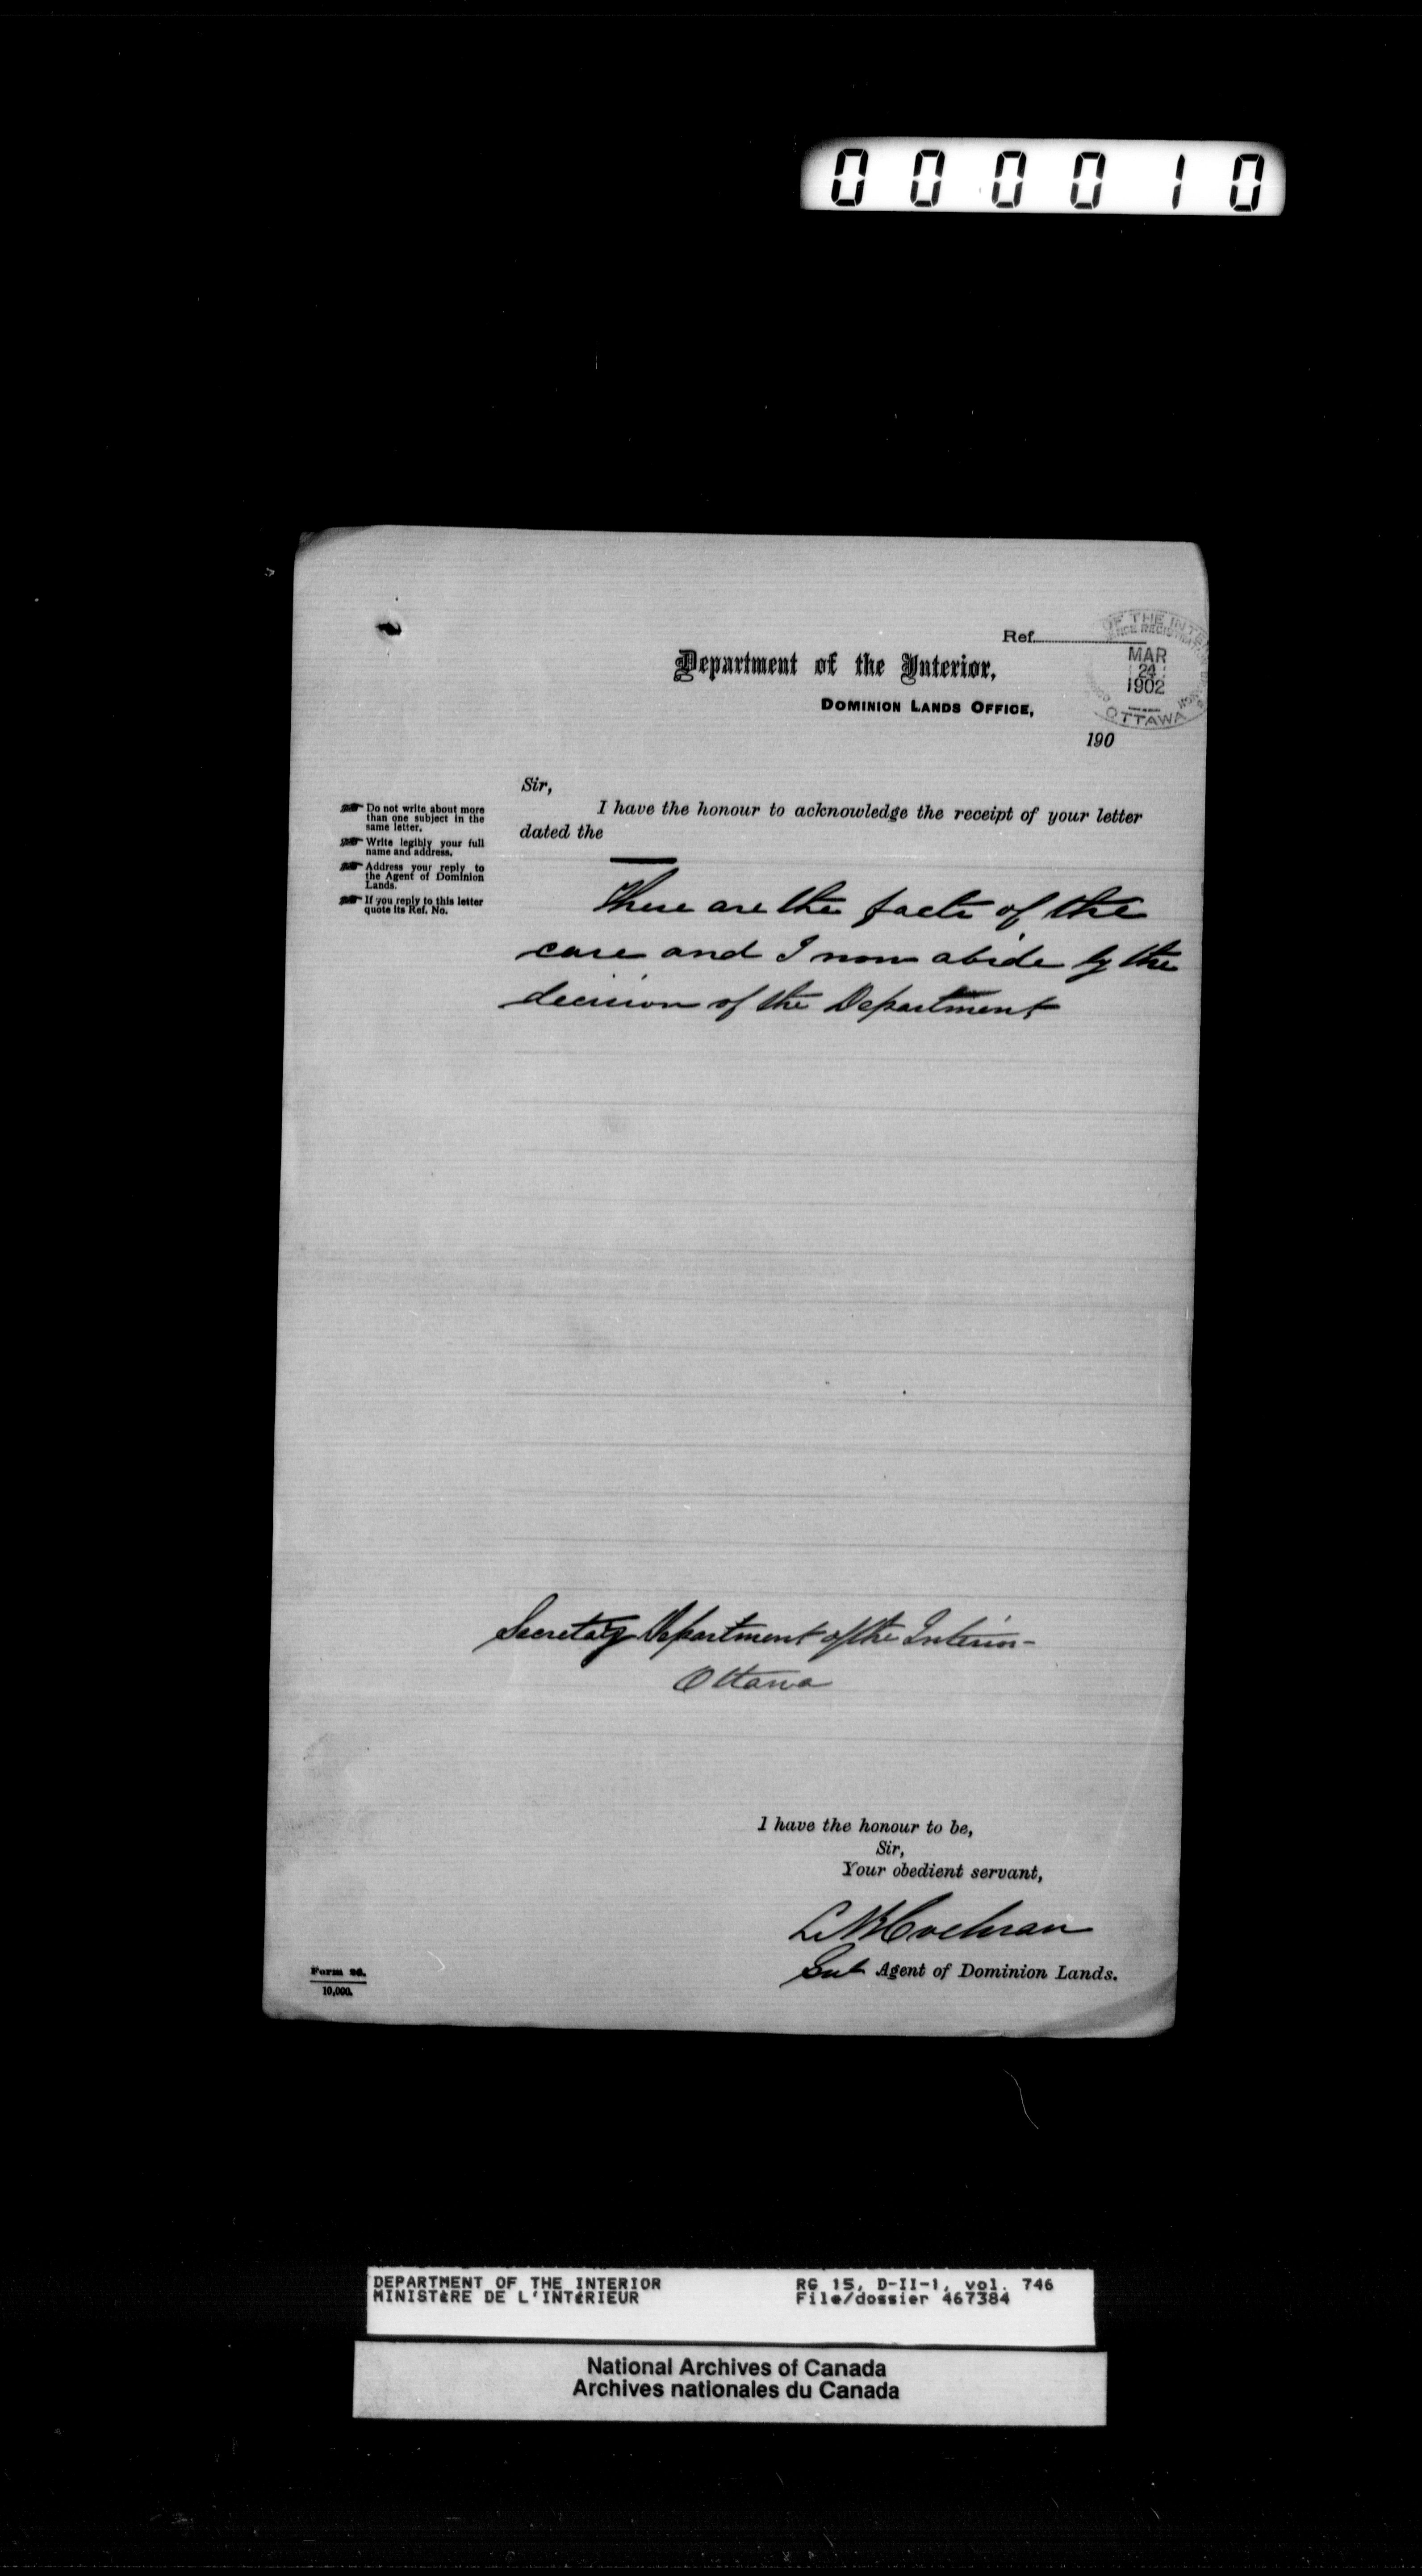 000010
Ref.
OF THE INTE
MAR
24
1902
OTTAWA
Department of the Interior,
DOMINION LANDS OFFICE,
190
Sir,
I have the honour to acknowledge the receipt of your letter
dated the
Do not write about more
than one subject in the
same letter.
Write legibly your full
name and address.
Address your reply to
the Agent of Dominion
Lands.
If you reply to this letter
quote its Ref. No.
These are the facts of the
case and I now abide by the
decision of the Department
Secretary Department of the Interior
Ottawa
I have the honour to be,
Sir,
Your obedient servant,
Cochran
Sub Agent of Dominion Lands.
Form 26.
10,000.
DEPARTMENT OF THE INTERIOR
MINISTÈRE DE L'INTÉRIEUR
RG 15, D-II-1, vol. 746
File/dossier 467384
National Archives of Canada
Archives nationales du Canada